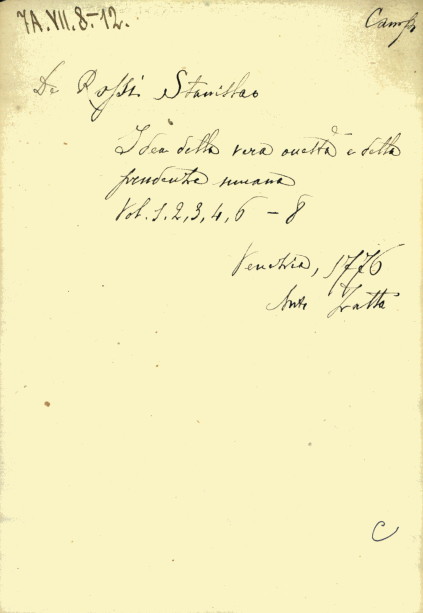 7A.VII.8-12.
Camp
De Rossi Stanislao
Idea della vera onestà e della
prudenza umana
Vol. 1, 2, 3, 4, 6 - 8
Venezia, 1776
Ant. Zatta
C